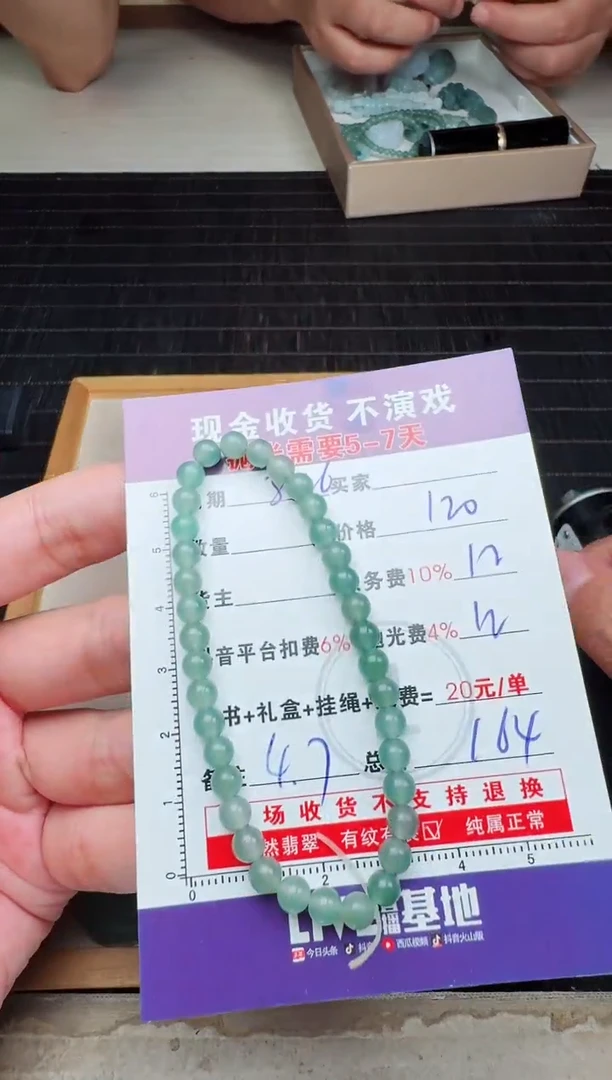 现金收货 不演戏
需要5-7天
期 8.6 买家
数量 价格 120
主 务费10% 12
音平台扣费6% 光费4% 12
书+礼盒+挂绳+ 费= 20元/单
备注 4.7 总 164
场收货不支持退换
然翡翠 有纹有 纯属正常
6
5
4
3
2
1
0
0 2 4 5
基地
今日头条 抖音 西瓜视频 抖音火山版